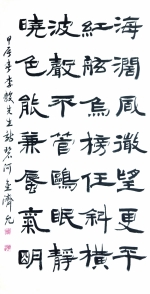 海濶風微望更平
紅舷烏榜任斜橫
波聲不管鷗眠靜
曉色能兼蜃氣明
甲辰年李駿先生詩碧河